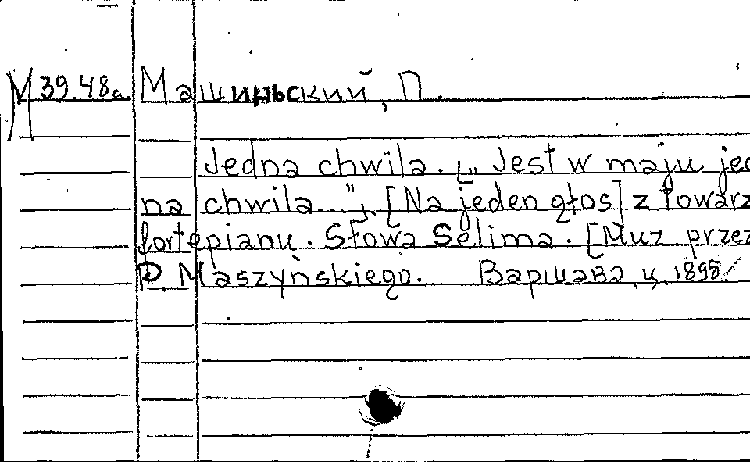 М 39.48а Машиньский, П.
Jedna chwila. [„Jest w maju jed
na chwila..."]. [Na jeden głos] z towarz
fortepianu. Słowa Selima. [Muz przez
P. Maszyńskiego. Варшава, ц. 1898